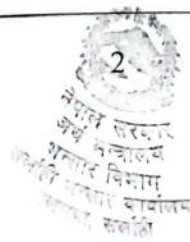 2
नेपाल सरकार
अर्थ मन्त्रालय
भन्सार विभाग
सर्लाही भन्सार कार्यालय
सर्लाही